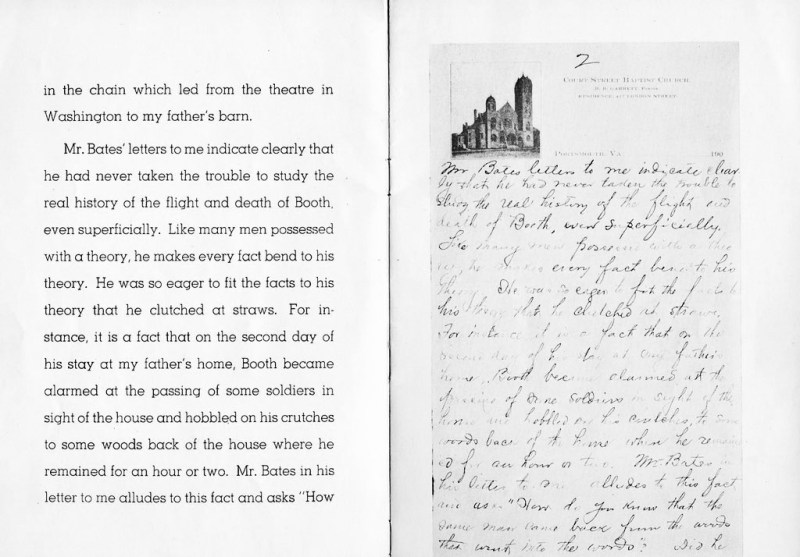 in the chain which led from the theatre in
Washington to my father's barn.
Mr. Bates' letters to me indicate clearly that
he had never taken the trouble to study the
real history of the flight and death of Booth,
even superficially. Like many men possessed
with a theory, he makes every fact bend to his
theory. He was so eager to fit the facts to his
theory that he clutched at straws. For in-
stance, it is a fact that on the second day of
his stay at my father's home, Booth became
alarmed at the passing of some soldiers in
sight of the house and hobbled on his crutches
to some woods back of the house where he
remained for an hour or two. Mr. Bates in his
letter to me alludes to this fact and asks "How
2
Court Street Baptist Church
Portsmouth, Va. 190
Mr Bates letters to me indicate clear
ly that he had never taken the trouble to
the real history of the flight and
death of Booth, even superficially.
Like many men possessed with a theo
he makes every fact bend to his
theory He was so eager to fit the facts to
his theory that he clutched at straws.
For instance it is a fact that on the
second day of his stay at my fathers
home, Booth became alarmed at the
passing of some soldiers in sight of the
house and hobbled on his crutches to some
woods back of the house where he remain
ed for an hour or two. Mr. Bates in
his letter to me alludes to this fact
and asks "How do you know that the
same man came back from the woods
that went into the woods"? Did he